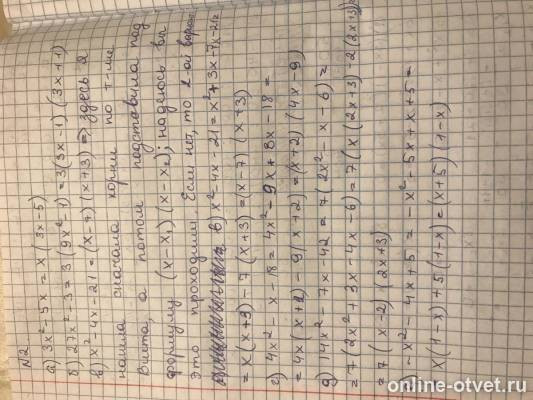 N2.
а) 3x² - 5x = x(3x-5)
б) 27x² - 3 = 3(9x² - 1) = 3(3x-1)(3x+1)
в) x² 4x - 21 = (x-7)(x+3) => здесь я
нашла сначала корни по т-ме
Виета, а потом подставила под
формулу (x-x₁)(x-x₂); надеюсь вы
это проходили. Если нет, то 2-ой
в) x² - 4x - 21 = x² + 3x - 7x - 21 =
= x(x+3) - 7(x+3) = (x-7)(x+3)
г) 4x² - x - 18 = 4x² - 9x + 8x - 18 =
= 4x(x+2) - 9(x+2) = (x+2)(4x-9)
д) 14x² - 7x - 42 = 7(2x² - x - 6) =
= 7(2x² + 3x - 4x - 6) = 7(x(2x+3) - 2(2x+3))
= 7(x-2)(2x+3)
) -x² - 4x + 5 = -x² - 5x + x + 5 =
x(1-x) + 5(1-x) = (x+5)(1-x)
online-otvet.ru